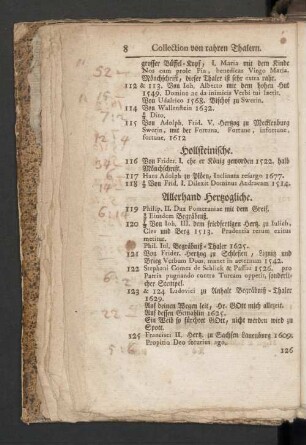 8 Collection von rahren Thalern.
grosser Büffel-Kopf, ). Maria mit dem Kinde
Nos cum prole Pia, benedicat Virgo Maria.
Mönchschrift, dieser Thaler ist sehr extra rahr.
112 & 113. Von Joh. Alberto mit dem hohen Hut
1549. Domine ne da inimicis Verbi tui laetit.
Von Udalrico 1568. Bischof zu Swerin.
114 Von Wallenstein 1632.
Dito,
115 Von Adolph. Frid. V. Hertzog zu Mecklenburg
Swerin, mit der Fortuna, Fortune, infortune,
fortune, 1612
Hollsteinische.
116 Von Frider. I. ehe er König geworden 1522. halb
Mönchschrift.
117 Hans Adolph zu Ploen, Inclinata resurgo 1677.
118 Von Frid. I. Dilexit Dominus Andream 1514.
Allerhand Hertzogliche.
119 Philip. II. Dux Pomeraniae mit dem Greif.
Eiusdem Begräbniß.
120 Von Joh. III. dem friedfertigen Hertz. zu Jülich,
Clev und Berg 1513. Prudentia rerum exitus
metitur.
Phil. Jul. Begräbniß-Thaler 1625.
121 Von Frider. Hertzog zu Schlesien, Lignitz und
Brieg Verbum Dom. manet in aeternum 1542.
122 Stephani Comes de Schlick & Passau 1526. pro
Patria pugnando contra Turcam oppetit, sonderlicher
Stempel.
123 & 124 Ludovici zu Anhalt Begräbniß-Thaler
1629.
Auf deinen Wegen leit, Hr. GOtt mich allezeit.
Auf dessen Gemahlin 1625.
Ein Weib so fürchtet GOtt, nicht werden wird zu
Spott.
125 Francisci II. Hertz. zu Sachsen Lauenburg 1609.
Propitio Deo securus ago.
126